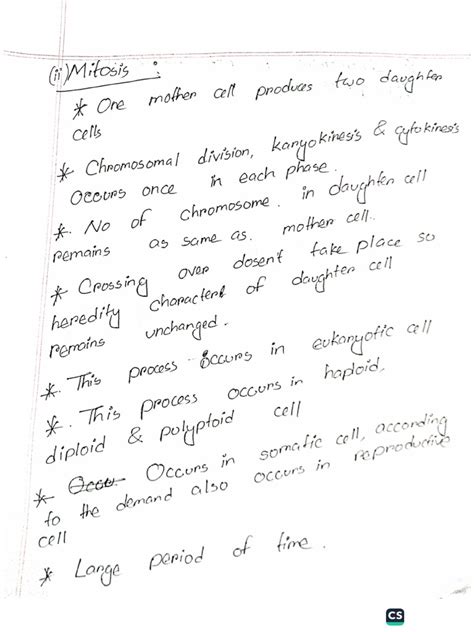 (ii) Mitosis :
* One mother cell produces two daughter
cells
* Chromosomal division, karyokinesis & cytokinesis
occurs once in each phase.
*. No of chromosome. in daughter cell
remains as same as. mother cell.
* Crossing over dosent take place so
heredity character of daughter cell
remains unchanged.
*. This process occurs in eukaryotic cell
*. This process occurs in haploid,
diploid & polyploid cell
* Occu Occurs in somatic cell, according
to the demand also occurs in reproductive
cell
* Large period of time.
CS